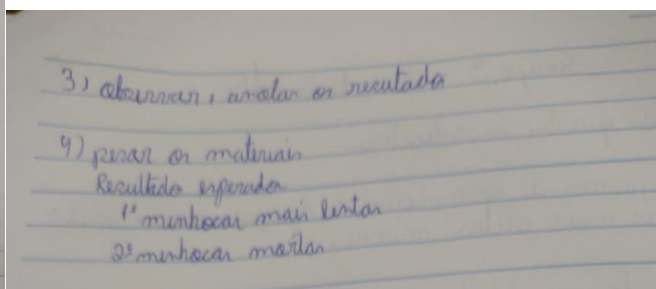 3) observar, anotar os recutados
4) pesar os materiais
Rezultado esperados
1º minhocas mais lentas
2º minhocas mortas